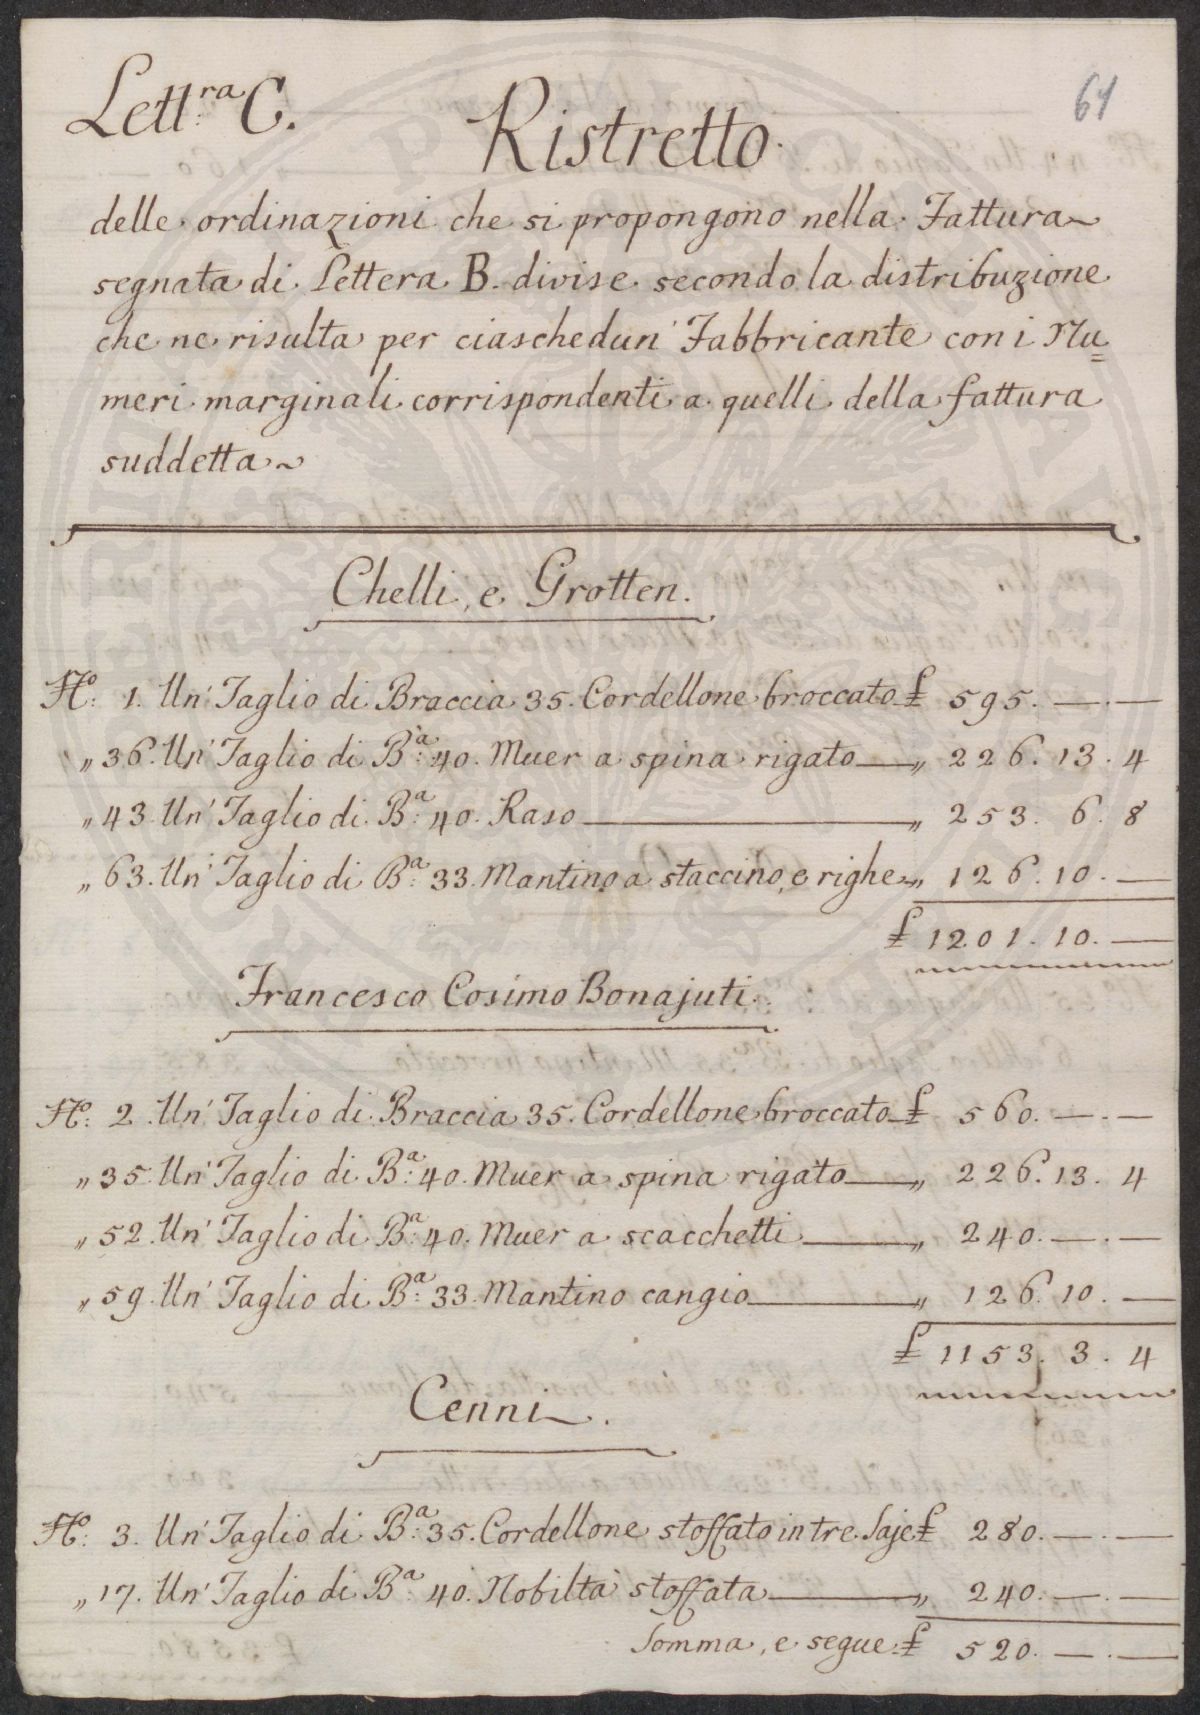 Lett:ra C.
61
Ristretto.
delle ordinazioni che si propongono nella Fattura~
segnata di Lettera B. divise secondo la distribuzione
che ne risulta per ciaschedun' Fabbricante con i Nu=
meri marginali corrispondenti a quelli della fattura
suddetta~
Chelli, e Grotten.
No: 1. Un' Taglio di Braccia 35. Cordellone broccato £ 595. — . —
„ 36. Un' Taglio di B:a 40. Muer a spina rigato — „ 226. 13. 4
„ 43. Un' Taglio di B:a 40. Raso — „ 253. 6. 8
„ 63. Un' Taglio di B:a 33. Mantino a staccino, e righe „ 126. 10. —
£ 1201. 10. —
Francesco Cosimo Bonajuti.
No: 2. Un' Taglio di Braccia 35. Cordellone broccato £ 560. — . —
„ 35. Un' Taglio di B:a 40. Muer a spina rigato — „ 226. 13. 4
„ 52. Un' Taglio di B:a 40. Muer a scacchetti — „ 240. — . —
„ 59. Un' Taglio di B:a 33. Mantino cangio — „ 126. 10. —
£ 1153. 3. 4
Cenni.
No: 3. Un' Taglio di B:a 35. Cordellone stoffato in tre Saje £ 280. — . —
„ 17. Un' Taglio di B:a 40. Nobiltà stoffata — „ 240. — . —
Somma, e segue £ 520. — . —